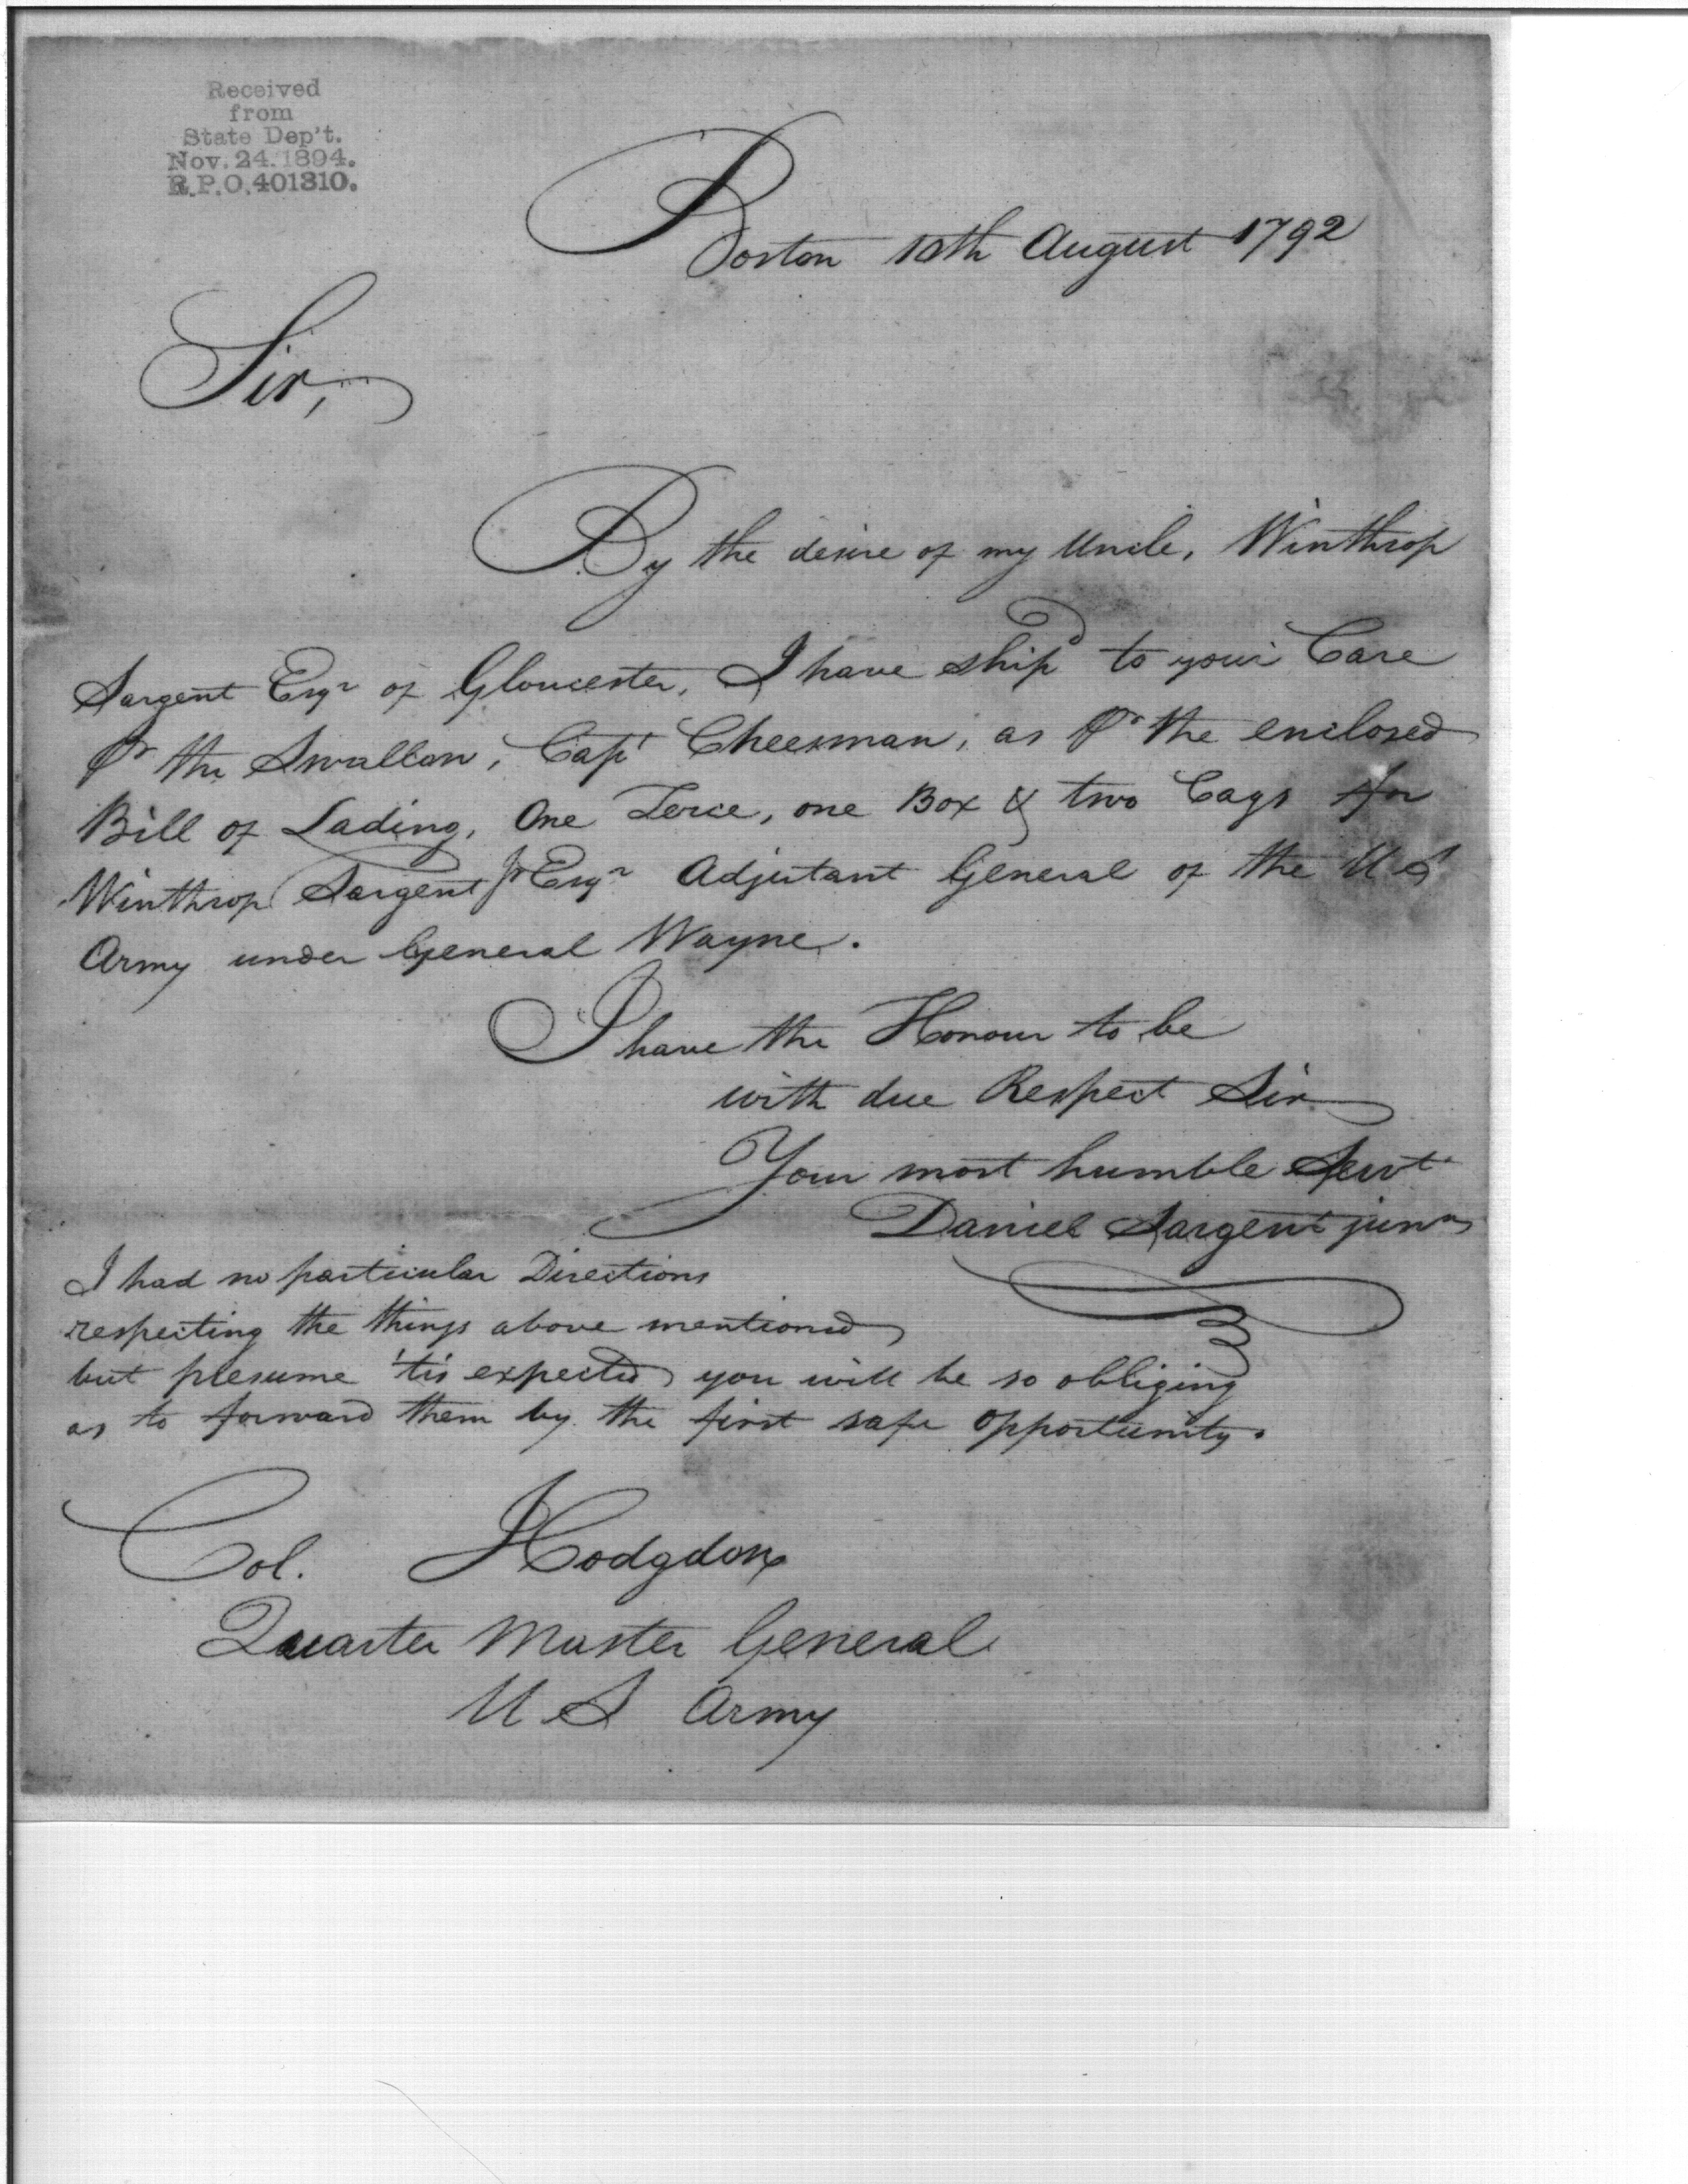 Received
from
State Dep't.
Nov. 24. 1894.
R.P.O. 401310.
Boston 10th August 1792
Sir,
By the desire of my Uncle, Winthrop
Sargent Esqr of Gloucester, I have ship'd to your Care
Pr the Swallow, Capt Cheesman, as Pr the enclosed
Bill of Lading, One Terce, one Box & two Cags for
Winthrop Sargent Jr Esqr Adjutant General of the U S
Army under General Wayne.
I have the Honour to be
with due Respect Sir
Your most humble Servt
Daniel Sargent junr
I had no particular Directions
respecting the things above mentioned
but presume 'tis expected you will be so obliging
as to forward them by the first safe opportunity.
Col. Hodgdon
Quarter Master General
U S Army